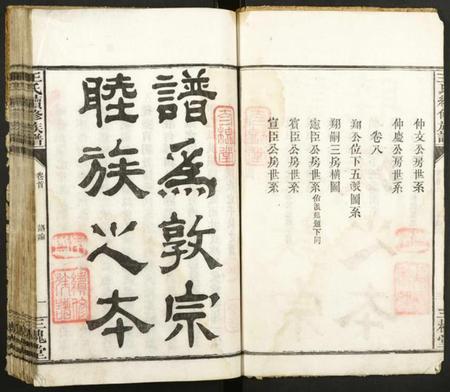 仲文公房世系
仲慶公房世系
卷八
翔公位下五派圖系
翔嗣三房橫圖
憲臣公房世系
賓臣公房世系
宣臣公房世系
三槐堂
譜為敦宗
睦族之本
王氏續修族譜
卷首
三槐堂